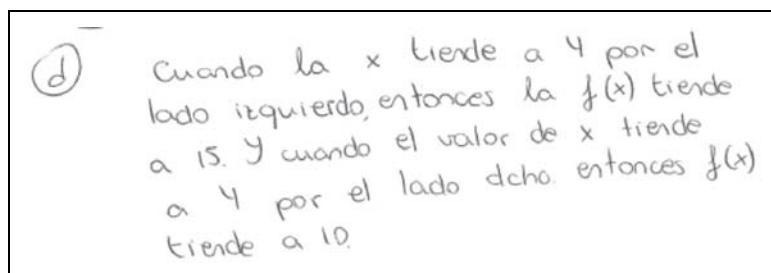 d Cuando la x tiende a 4 por el
lado izquierdo, entonces la f(x) tiende
a 15. Y cuando el valor de x tiende
a 4 por el lado dcho. entonces f(x)
tiende a 10.